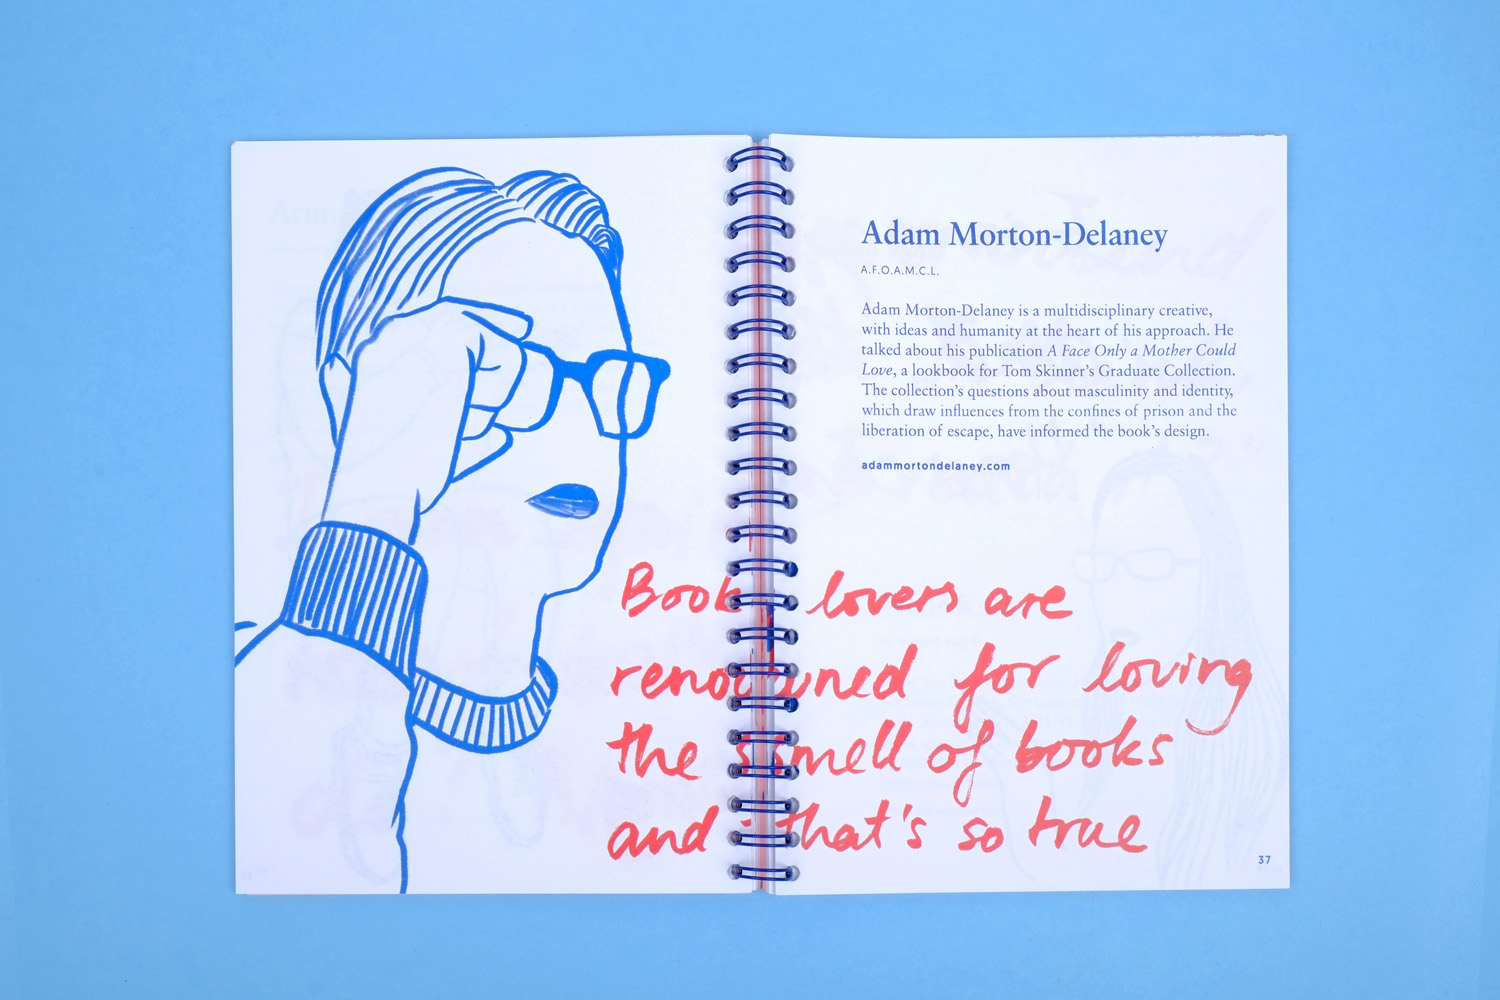 Adam Morton-Delaney
A.F.O.A.M.C.L.
Adam Morton-Delaney is a multidisciplinary creative,
with ideas and humanity at the heart of his approach. He
talked about his publication A Face Only a Mother Could
Love, a lookbook for Tom Skinner's Graduate Collection.
The collection's questions about masculinity and identity,
which draw influences from the confines of prison and the
liberation of escape, have informed the book's design.
adammortondelaney.com
Book lovers are
renowned for loving
the smell of books
and that's so true
37